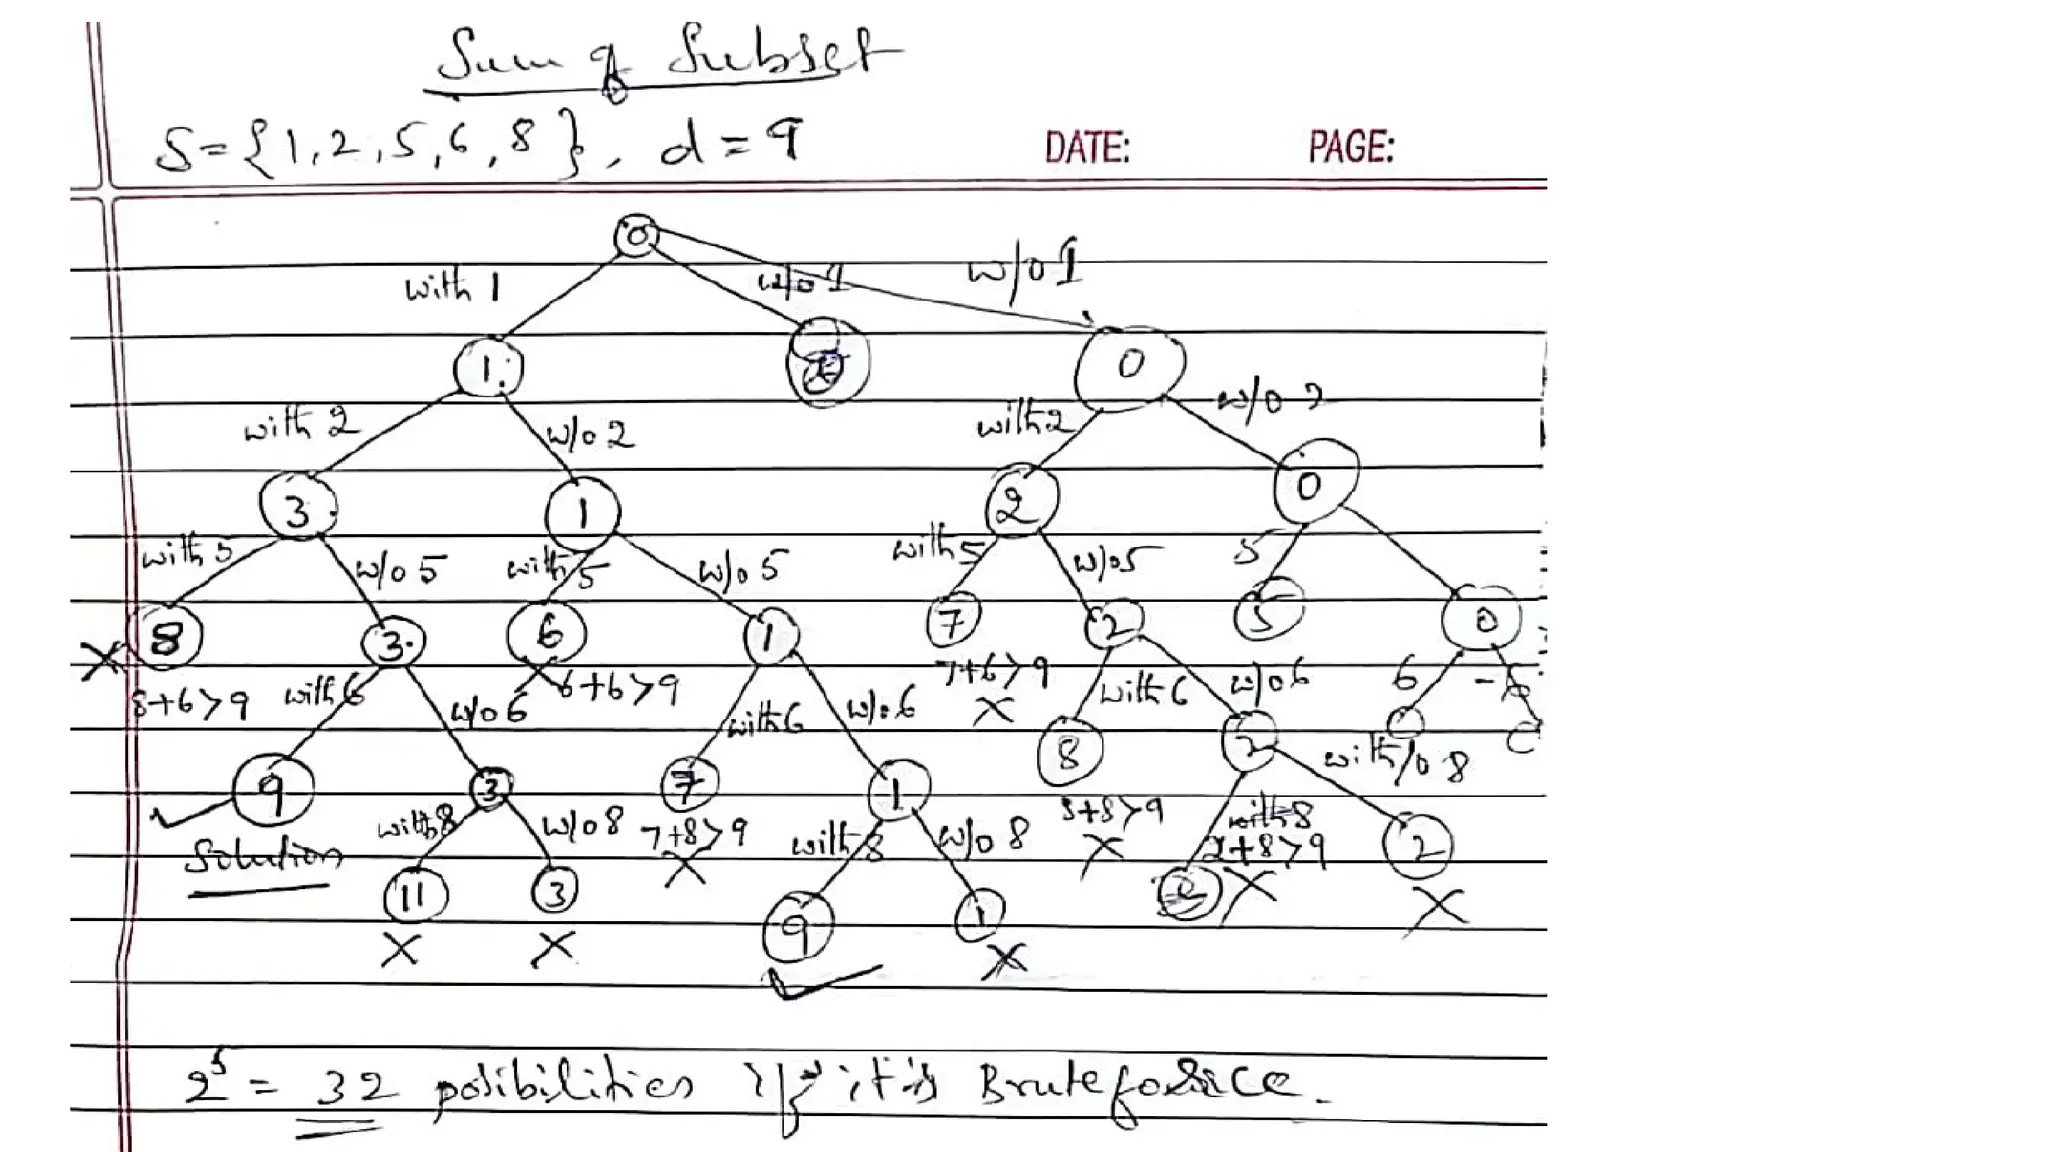 Sum of Subset
S={1,2,5,6,8}, d=9
DATE: PAGE:
0
with 1 w/o 1 w/o 1
1 0
with 2 w/o 2 with 2 w/o 2
3 1 2 0
with 5 w/o 5 with 5 w/o 5 with 5 w/o 5 5
8 3 6 1 7 2 5 0
X 8+6>9 with 6 w/o 6 X 6+6>9 with 6 w/o 6 7+6>9 X with 6 w/o 6 6 -6
9 3 7 1 8 2
✓ Solution with 8 w/o 8 7+8>9 X with 8 w/o 8 8+8>9 X with 8 2+8>9 X with/o 8
11 3 9 1 2
X X ✓ X X
2^5 = 32 posibilities if it is Bruteforce.